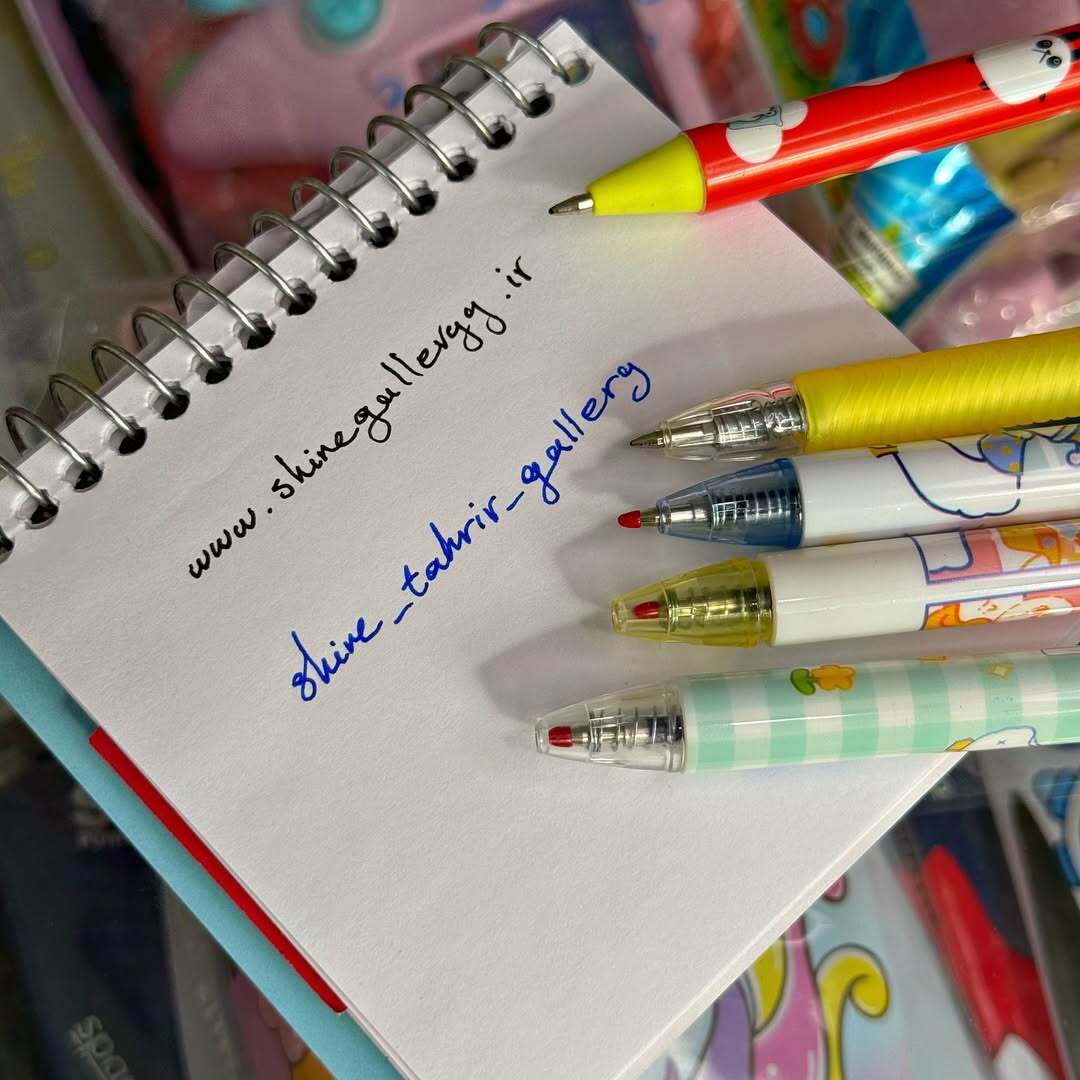 www.shinegalleryy.ir
shine_tahrir_gallery